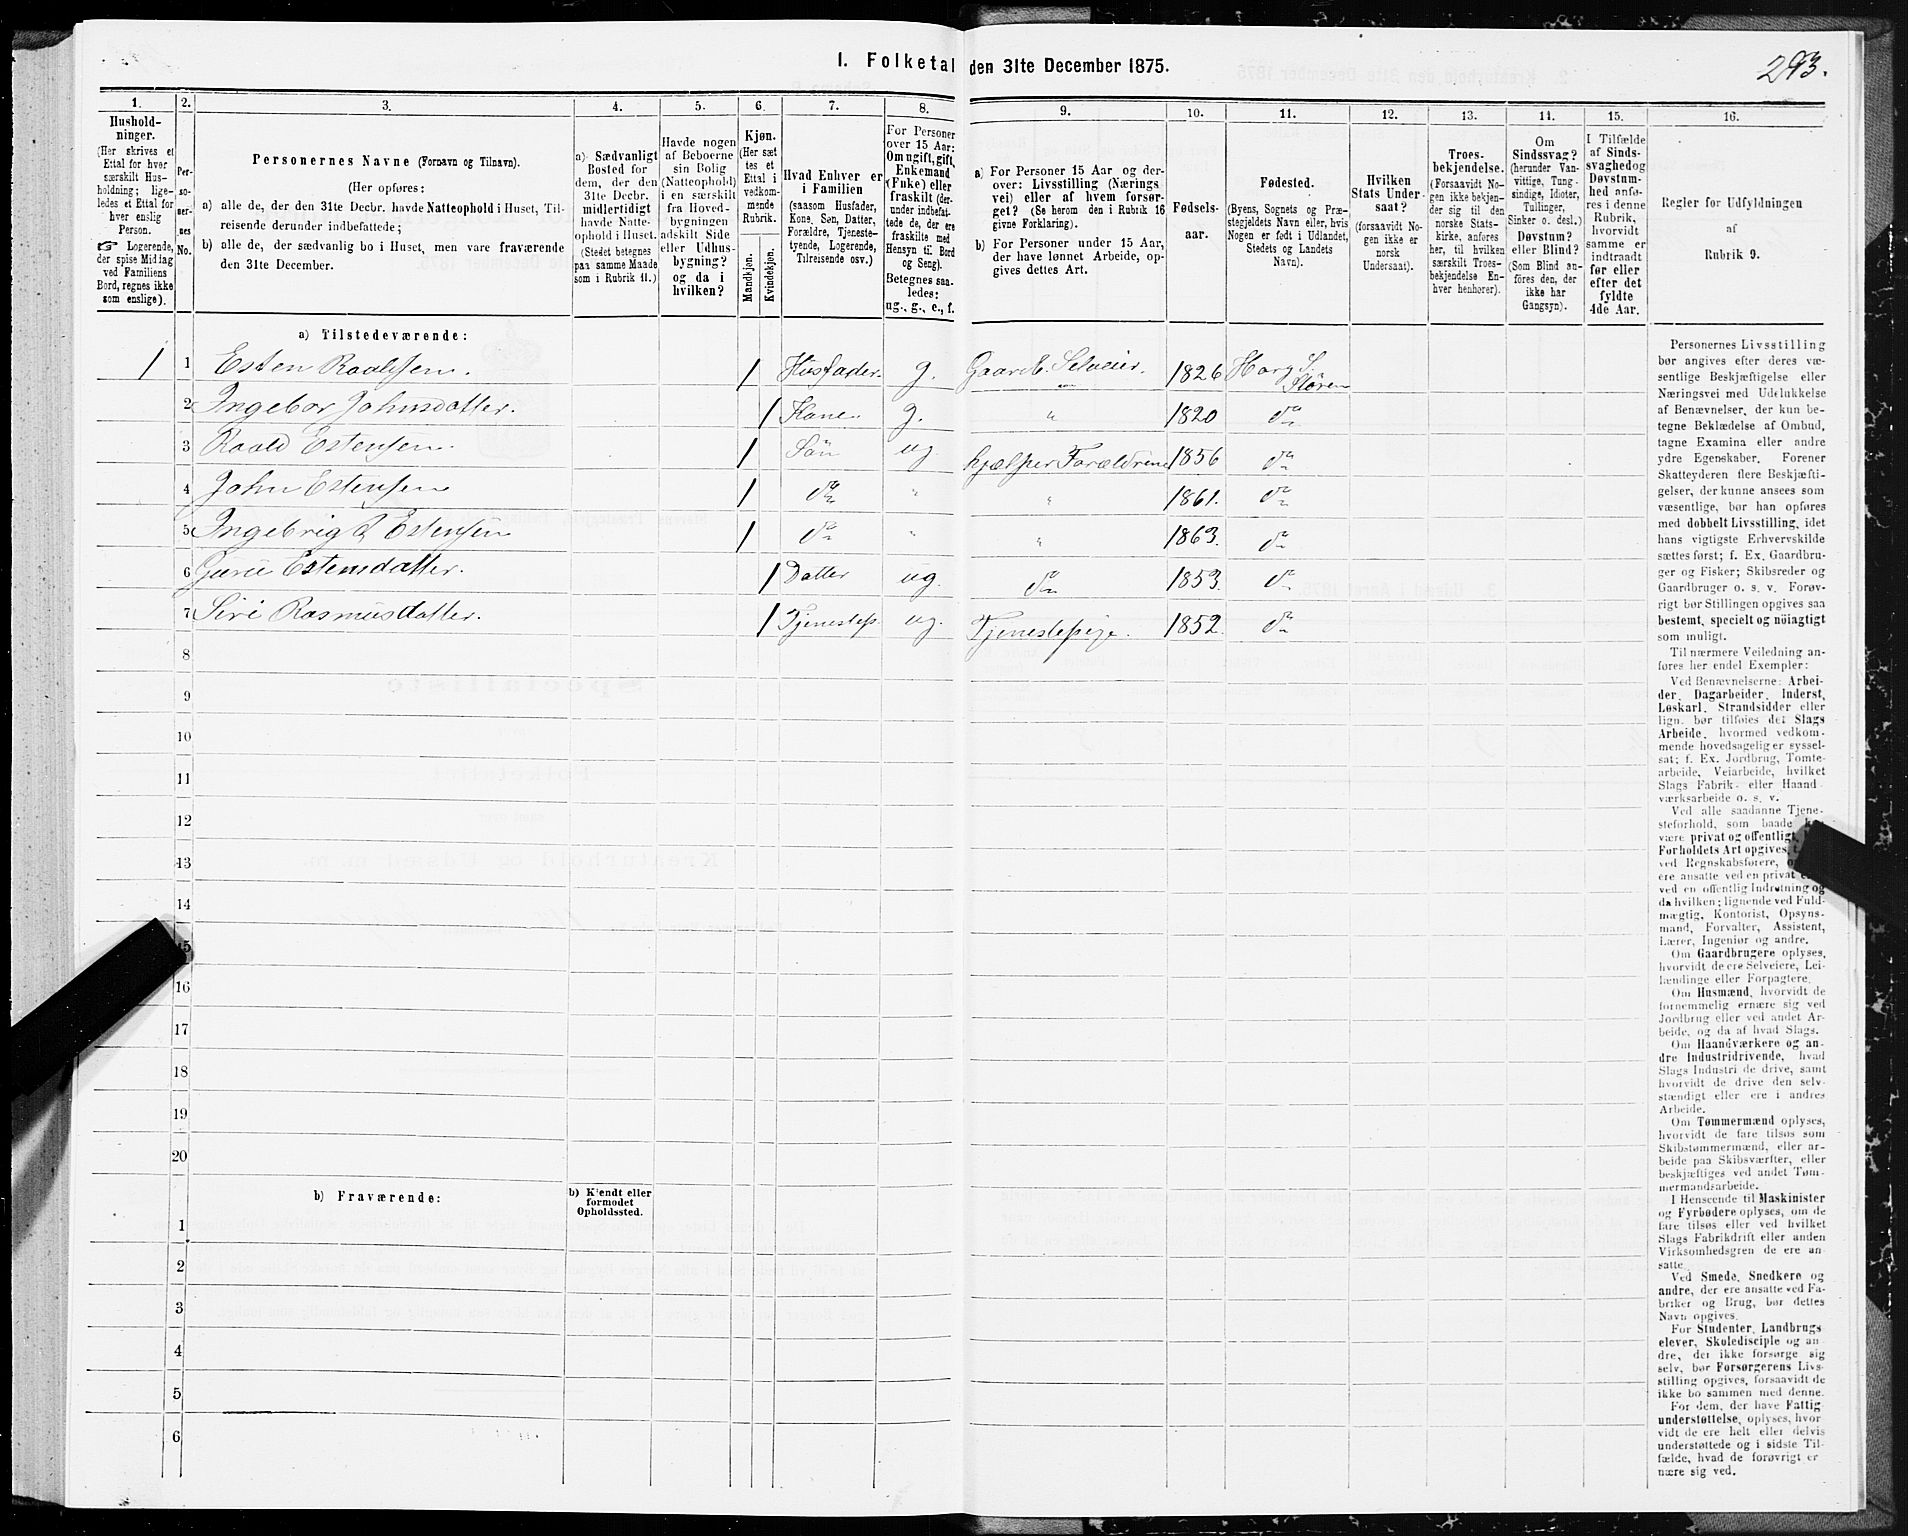 I. Folketal den 31te December 1875.
293.
1.
Hushold-
ninger.
(Her skrives et
Ettal for hver
særskilt Hus-
holdning; lige-
ledes et Ettal for
hver enslig
Person.
☞ Logerende,
der spise Middag
ved Familiens
Bord, regnes ikke
som enslige).
2.
Per-
so-
ner-
nes
No.
3.
Personernes Navne (Fornavn og Tilnavn).
(Her opføres:
a) alle de, der den 31te Decbr. havde Natteophold i Huset, Til-
reisende derunder indbefattede;
b) alle de, der sædvanlig bo i Huset, men vare fraværende
den 31te December.
4.
a) Sædvanligt
Bosted for
dem, der den
31te Decbr.
midlertidigt
havde Natte-
ophold i Huset.
(Stedet betegnes
paa samme Maade
som i Rubrik 11.)
5.
Havde nogen
af Beboerne
sin Bolig
(Natteophold)
i en særskilt
fra Hoved-
bygningen
adskilt Side
eller Udhus-
bygning?
og da i
hvilken?
6.
Kjøn.
(Her sæt
tes et
Ettal i
vedkom-
mende
Rubrik.
Mandkjøn.
Kvindekjøn.
7.
Hvad Enhver er
i Familien
(saasom Husfader,
Kone, Søn, Datter,
Forældre, Tjeneste-
tyende, Logerende,
Tilreisende osv.)
8.
For Personer
over 15 Aar:
Om ugift, gift,
Enkemand
(Enke) eller
fraskilt (der-
under indbefat-
tede de, der ere
fraskilte med
Hensyn til Bord
og Seng).
Betegnes saa-
ledes:
ug., g., e., f.
9.
a) For Personer 15 Aar og der-
over: Livsstilling (Nærings
vei) eller af hvem forsør-
get? (Se herom den i Rubrik 16
givne Forklaring).
b) For Personer under 15 Aar,
der have lønnet Arbeide, op-
gives dettes Art.
10.
Fødsels-
aar.
11.
Fødested.
(Byens, Sognets og Præ-
stegjeldets Navn eller, hvis
Nogen er født i Udlandet,
Stedets og Landets
Navn).
12.
Hvilken
Stats Under-
saat?
(forsaavidt No-
gen ikke er
norsk
Undersaat).
13.
Troes-
bekjendelse.
(Forsaavidt No-
gen ikke bekjen-
der sig til den
norske Stats-
kirke, anføres
her, til hvilken
særskilt Troes-
bekjendelse En-
hver henhører).
14.
Om
Sindssvag?
(herunder Van-
vittige, Tung-
sindige, Idioter,
Tullinger,
Sinker o. desl.)
Døvstum?
eller Blind?
(Som Blind an-
føres den, der
ikke har
Gangsyn).
15.
I Tilfælde
af Sinds-
svaghed og
Døvstum-
hed anfø-
res i denne
Rubrik,
hvorvidt
samme er
indtraadt
før eller
efter det
fyldte
4de Aar.
16.
Regler for Udfyldningen
af
Rubrik 9.
a) Tilstedeværende:
1 1 Esten Roaldsen. 1 Husfader. g. Gaardb. Selveier. 1826 Horg S. Støren
2 Ingebor Johnsdatter. 1 Kone g. " 1820 do
3 Roald Estensen 1 Søn ug hjælper Forældrene 1856 do
4 John Estensen 1 do " " 1861. do
5 Ingebrigt Estensen 1 do " " 1863. do
6 Guru Estensdatter. 1 Datter ug. do 1853. do
7 Siri Rasmusdatter. 1 Tjenestep. ug. Tjenestepige. 1852. do
8
9
10
11
12
13
14
15
16
17
18
19
20
b) Fraværende:
b) Kjendt eller
formodet
Opholdssted.
1
2
3
4
5
6
Personernes Livsstilling
bør angives efter deres væ-
sentlige Beskjæftigelse eller
Næringsvei med Udelukkelse
af Benævnelser, der kun be-
tegne Beklædelse af Ombud,
tagne Examina eller andre
ydre Egenskaber. Forener
Skatteyderen flere Beskjæfti-
gelser, der kunne ansees som
væsentlige, bør han opføres
med dobbelt Livsstilling, idet
hans vigtigste Erhvervskilde
sættes først; f. Ex. Gaardbru-
ger og Fisker; Skibsreder og
Gaardbruger o. s. v. Forøv-
rigt bør Stillingen opgives saa
bestemt, specielt og nøiagtigt
som muligt.
Til nærmere Veiledning an-
føres her endel Exempler:
Ved Benævnelserne: Arbei-
der, Dagarbeider, Inderst,
Løskarl, Strandsidder eller
lign. bør tilføies det Slags
Arbeide, hvormed vedkom-
mende hovedsagelig er syssel-
sat; f. Ex. Jordbrug, Tomte-
arbeide, Veiarbeide, hvilket
Slags Fabrik- eller Haand
værksarbeide o. s. v.
Ved alle saadanne Tjene-
steforhold, som baade
være privat og offentligt,
Forholdets Art opgives,
ved Regnskabsførere,
ere ansatte ved en privat
ved en offentlig Indretning og
da hvilken; lignende ved Fuld-
mægtig, Kontorist, Opsyns-
mand, Forvalter, Assistent,
Lærer, Ingeniør og andre.
Om Gaardbrugere oplyses,
hvorvidt de ere Selveiere, Lei-
lændinge eller Forpagtere.
Om Husmænd, hvorvidt de
fornemmelig ernære sig ved
Jordbrug eller ved andet Ar-
beide, og da af hvad Slags.
Om Haandværkere og an-
dre Industridrivende, hvad
Slags Industri de drive, samt
hvorvidt de drive den selv-
stændigt eller ere i andres
Arbeide.
Om Tømmermænd oplyses,
hvorvidt de fare tilsøs som
Skibstømmermænd, eller ar-
beide paa Skibsværfter, eller
beskjæftiges ved andet Tøm-
mermandsarbeide.
I Henseende til Maskinister
og Fyrbødere oplyses, om de
fare tilsøs eller ved hvilket
Slags Fabrikdrift eller anden
Virksomhedsgren de ere an-
satte.
Ved Smede, Snedkere og
andre, der ere ansatte ved Fa-
briker og Brug, bør dettes
Navn opgives.
For Studenter, Landbrugs
elever, Skoledisciple og an
dre, der ikke forsørge sig
selv, bør Forsørgerens Livs-
stilling opgives, forsaavidt de
ikke bo sammen med denne.
For dem, der have Fattig
understøttelse, oplyses, hvor
vidt de ere helt eller delvis
understøttede og i sidste Til-
fælde, hvad de forøvrigt er
nære sig ved.